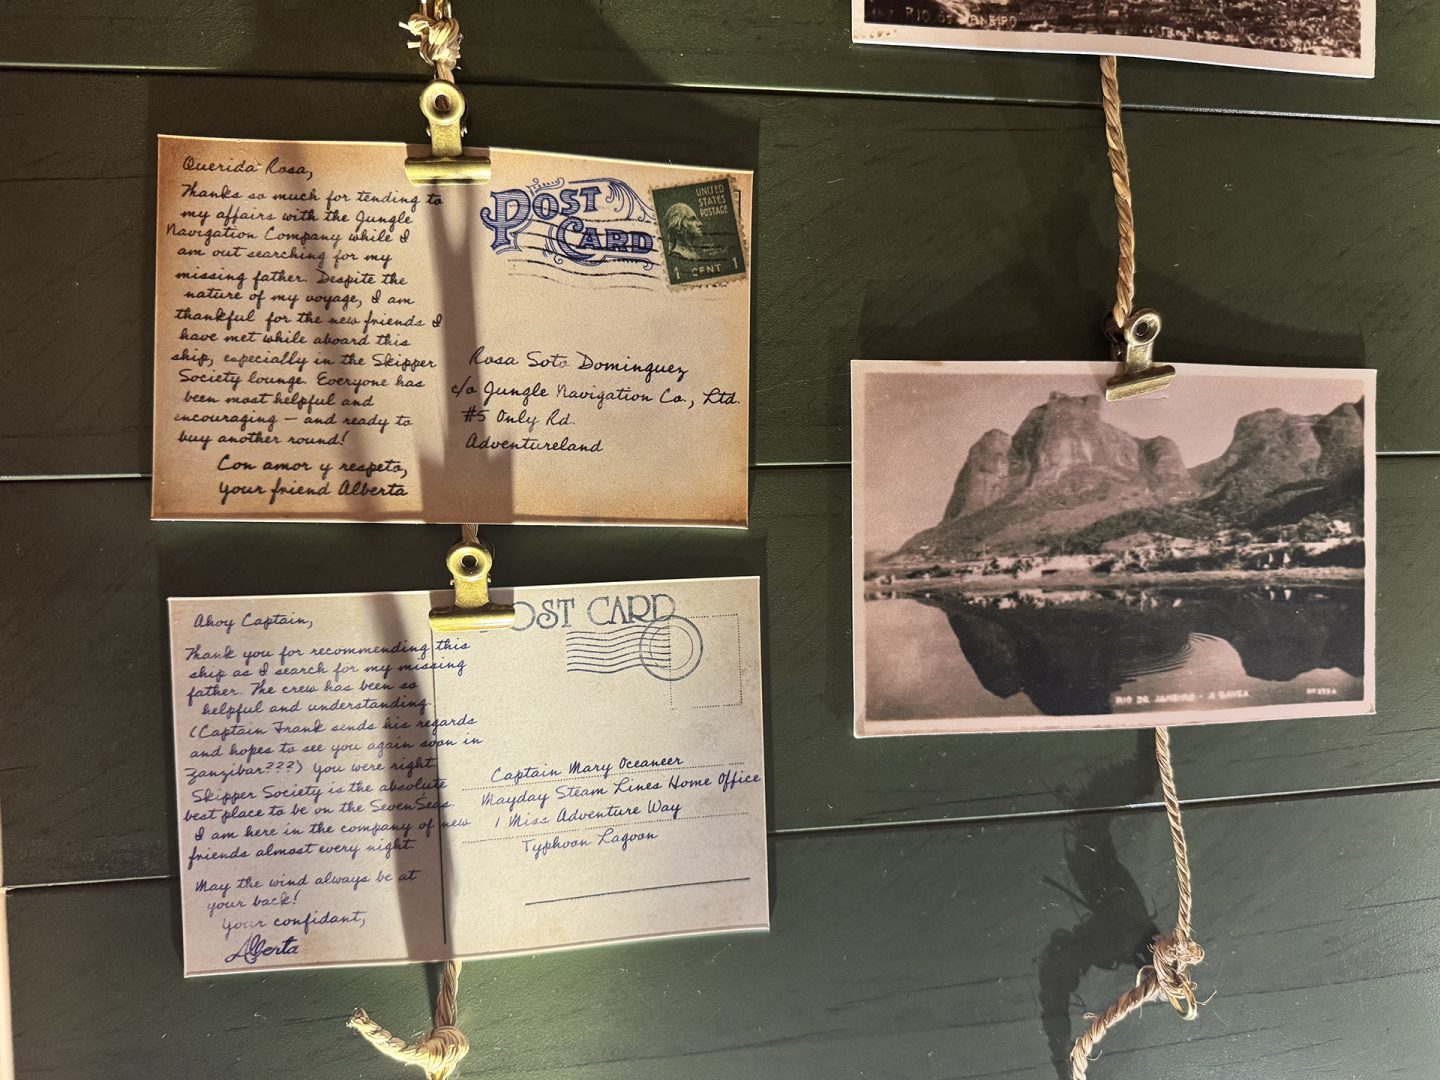 RIO DE JANEIRO
Querida Rosa,
Thanks so much for tending to
my affairs with the Jungle
Navigation Company while I
am out searching for my
missing father. Despite the
nature of my voyage, I am
thankful for the new friends I
have met while aboard this
ship, especially in the Skipper
Society lounge. Everyone has
been most helpful and
encouraging — and ready to
buy another round!
Con amor y respeto,
your friend Alberta
POST
CARD
UNITED
STATES
POSTAGE
1 CENT 1
Rosa Soto Dominguez
c/o Jungle Navigation Co., Ltd.
#5 Only Rd.
Adventureland
Ahoy Captain,
Thank you for recommending this
ship as I search for my missing
father. The crew has been so
helpful and understanding.
(Captain Frank sends his regards
and hopes to see you again soon in
Zanzibar???) You were right
Skipper Society is the absolute
best place to be on the Seven Seas.
I am here in the company of new
friends almost every night.
May the wind always be at
your back!
Your confidant,
Alberta
POST CARD
Captain Mary Oceaneer
Mayday Steam Lines Home Office
1 Miss Adventure Way
Typhoon Lagoon
RIO DE JANEIRO - A GAVEA